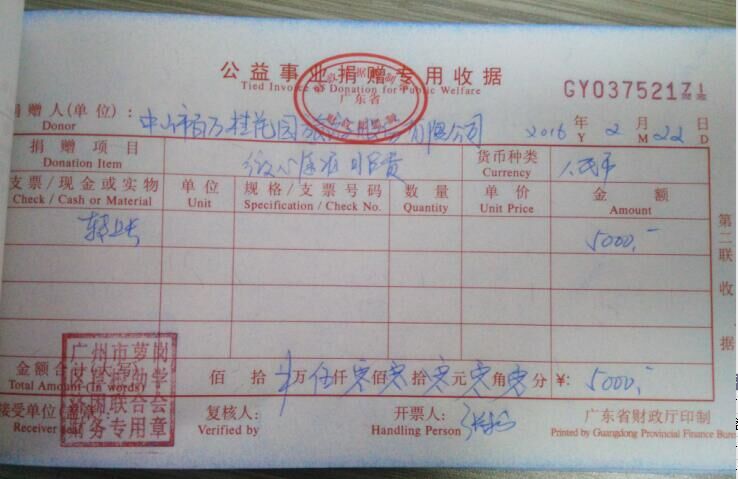 公益事业捐赠专用收据
Tied Invoice of Donation for Public Welfare
广东省
GY03752171
捐赠人(单位): 中山市百万桂花园 有限公司 2016年2月22日
Donor Y M D
捐赠项目 货币种类 人民币
Donation Item Currency
支票/现金或实物 单位 规格/支票号码 数量 单价 金额
Check / Cash or Material Unit Specification / Check No. Quantity Unit Price Amount
转账 5000.-
第二联收据
广州市萝岗
学
联合会
财务专用章
金额合计(大写) 佰拾 万伍仟零佰零拾零元零角零分 ¥: 5000.-
Total Amount (In words)
接受单位(盖章): 复核人: 开票人: 广东省财政厅印制
Receiver Verified by Handling Person Printed by Guangdong Provincial Finance Bure